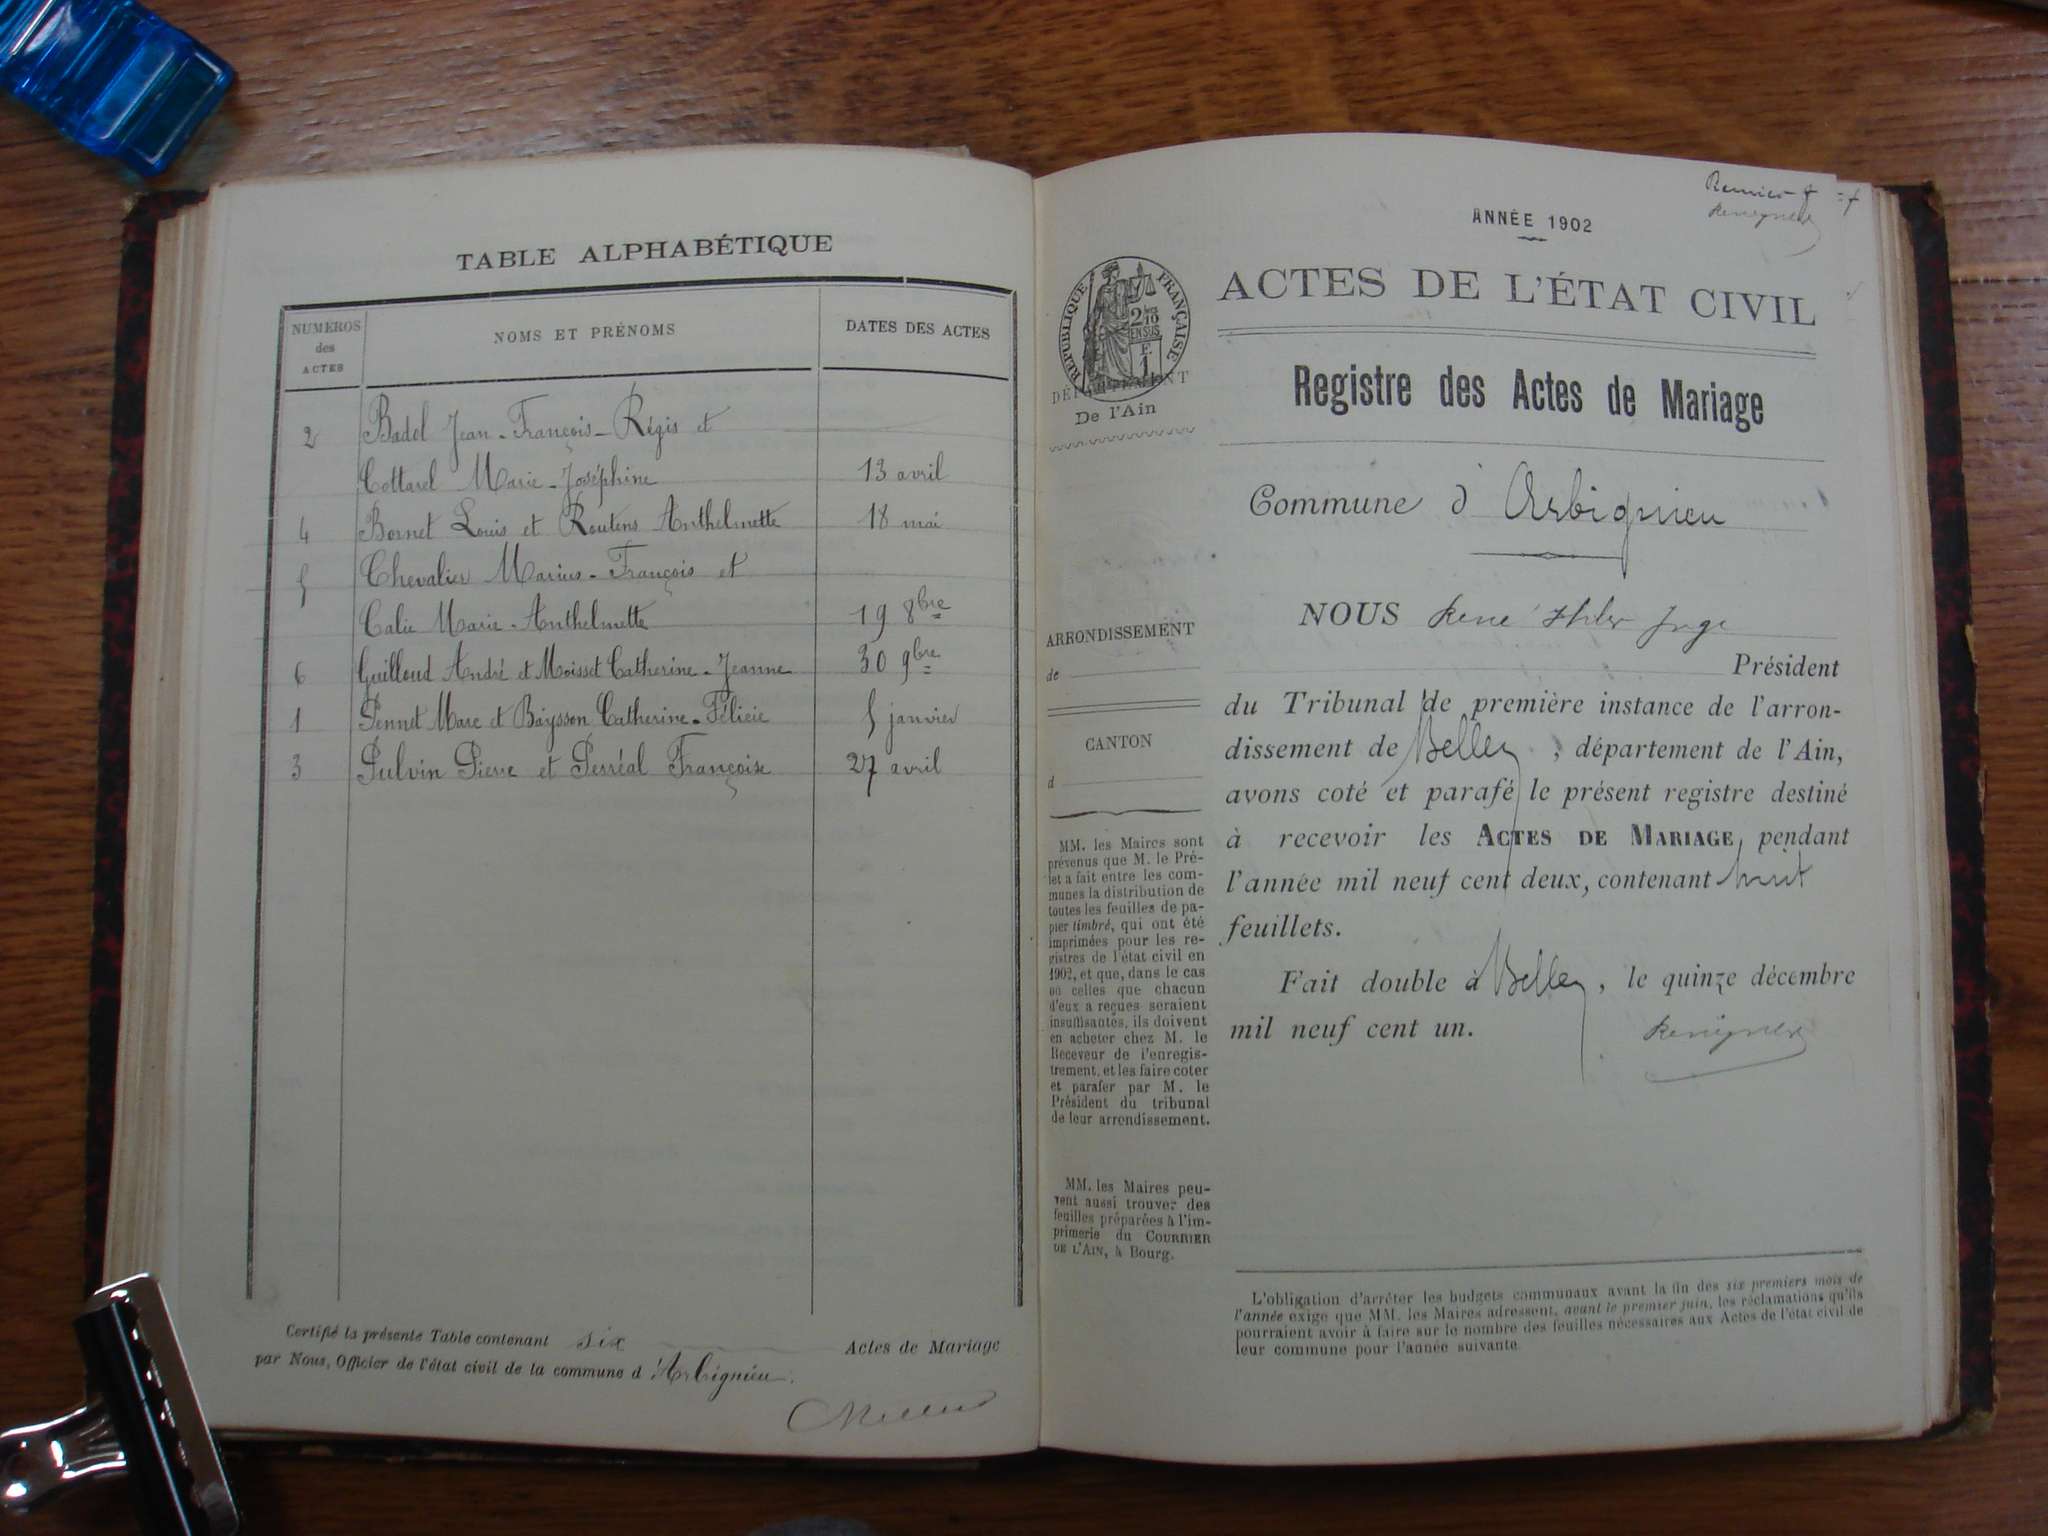 TABLE ALPHABÉTIQUE
NUMÉROS des ACTES
NOMS ET PRÉNOMS
DATES DES ACTES
2 Badel Jean-François-Régis et
Cottarel Marie-Joséphine 13 avril
4 Bornet Louis et Routens Anthelmette 18 mai
5 Chevalier Marius-François et
Calie Marie-Anthelmette 19 8bre
6 Guilloud André et Moisset Catherine-Jeanne 30 9bre
1 Pennet Marc et Baysson Catherine-Félicie 5 janvier
3 Pulvin Pierre et Perréal Françoise 27 avril
Certifié la présente Table contenant six Actes de Mariage
par Nous, Officier de l'état civil de la commune d'Arbignieu.
ANNÉE 1902
RÉPUBLIQUE FRANÇAISE
2/10 EN SUS.
F. 1
DÉPARTEMENT
De l'Ain
ARRONDISSEMENT
de
CANTON
d
MM. les Maires sont
prévenus que M. le Pré-
fet a fait entre les com-
munes la distribution de
toutes les feuilles de pa-
pier timbré, qui ont été
imprimées pour les re-
gistres de l'état civil en
1902, et que, dans le cas
où celles que chacun
d'eux a reçues seraient
insuffisantes, ils doivent
en acheter chez M. le
Receveur de l'enregis-
trement, et les faire coter
et parafer par M. le
Président du tribunal
de leur arrondissement.
MM. les Maires peu-
vent aussi trouver des
feuilles préparées à l'im-
primerie du COURRIER
DE L'AIN, à Bourg.
ACTES DE L'ÉTAT CIVIL
Registre des Actes de Mariage
Commune d'Arbignieu
NOUS René Juge
Président
du Tribunal de première instance de l'arron-
dissement de Belley, département de l'Ain,
avons coté et parafé le présent registre destiné
à recevoir les ACTES DE MARIAGE, pendant
l'année mil neuf cent deux, contenant huit
feuillets.
Fait double à Belley, le quinze décembre
mil neuf cent un.
L'obligation d'arrêter les budgets communaux avant la fin des six premiers mois de
l'année exige que MM. les Maires adressent, avant le premier juin, les réclamations qu'ils
pourraient avoir à faire sur le nombre des feuilles nécessaires aux Actes de l'état civil de
leur commune pour l'année suivante.